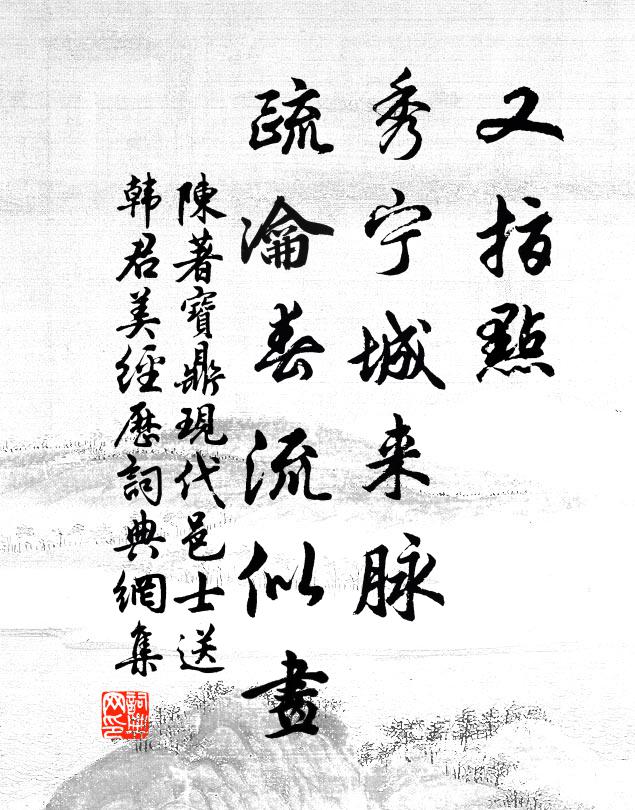 又指點
秀宁城来脉
疏瀹春流似畫
陳著寶鼎現代邑士送
韩君美經歷詞典網集